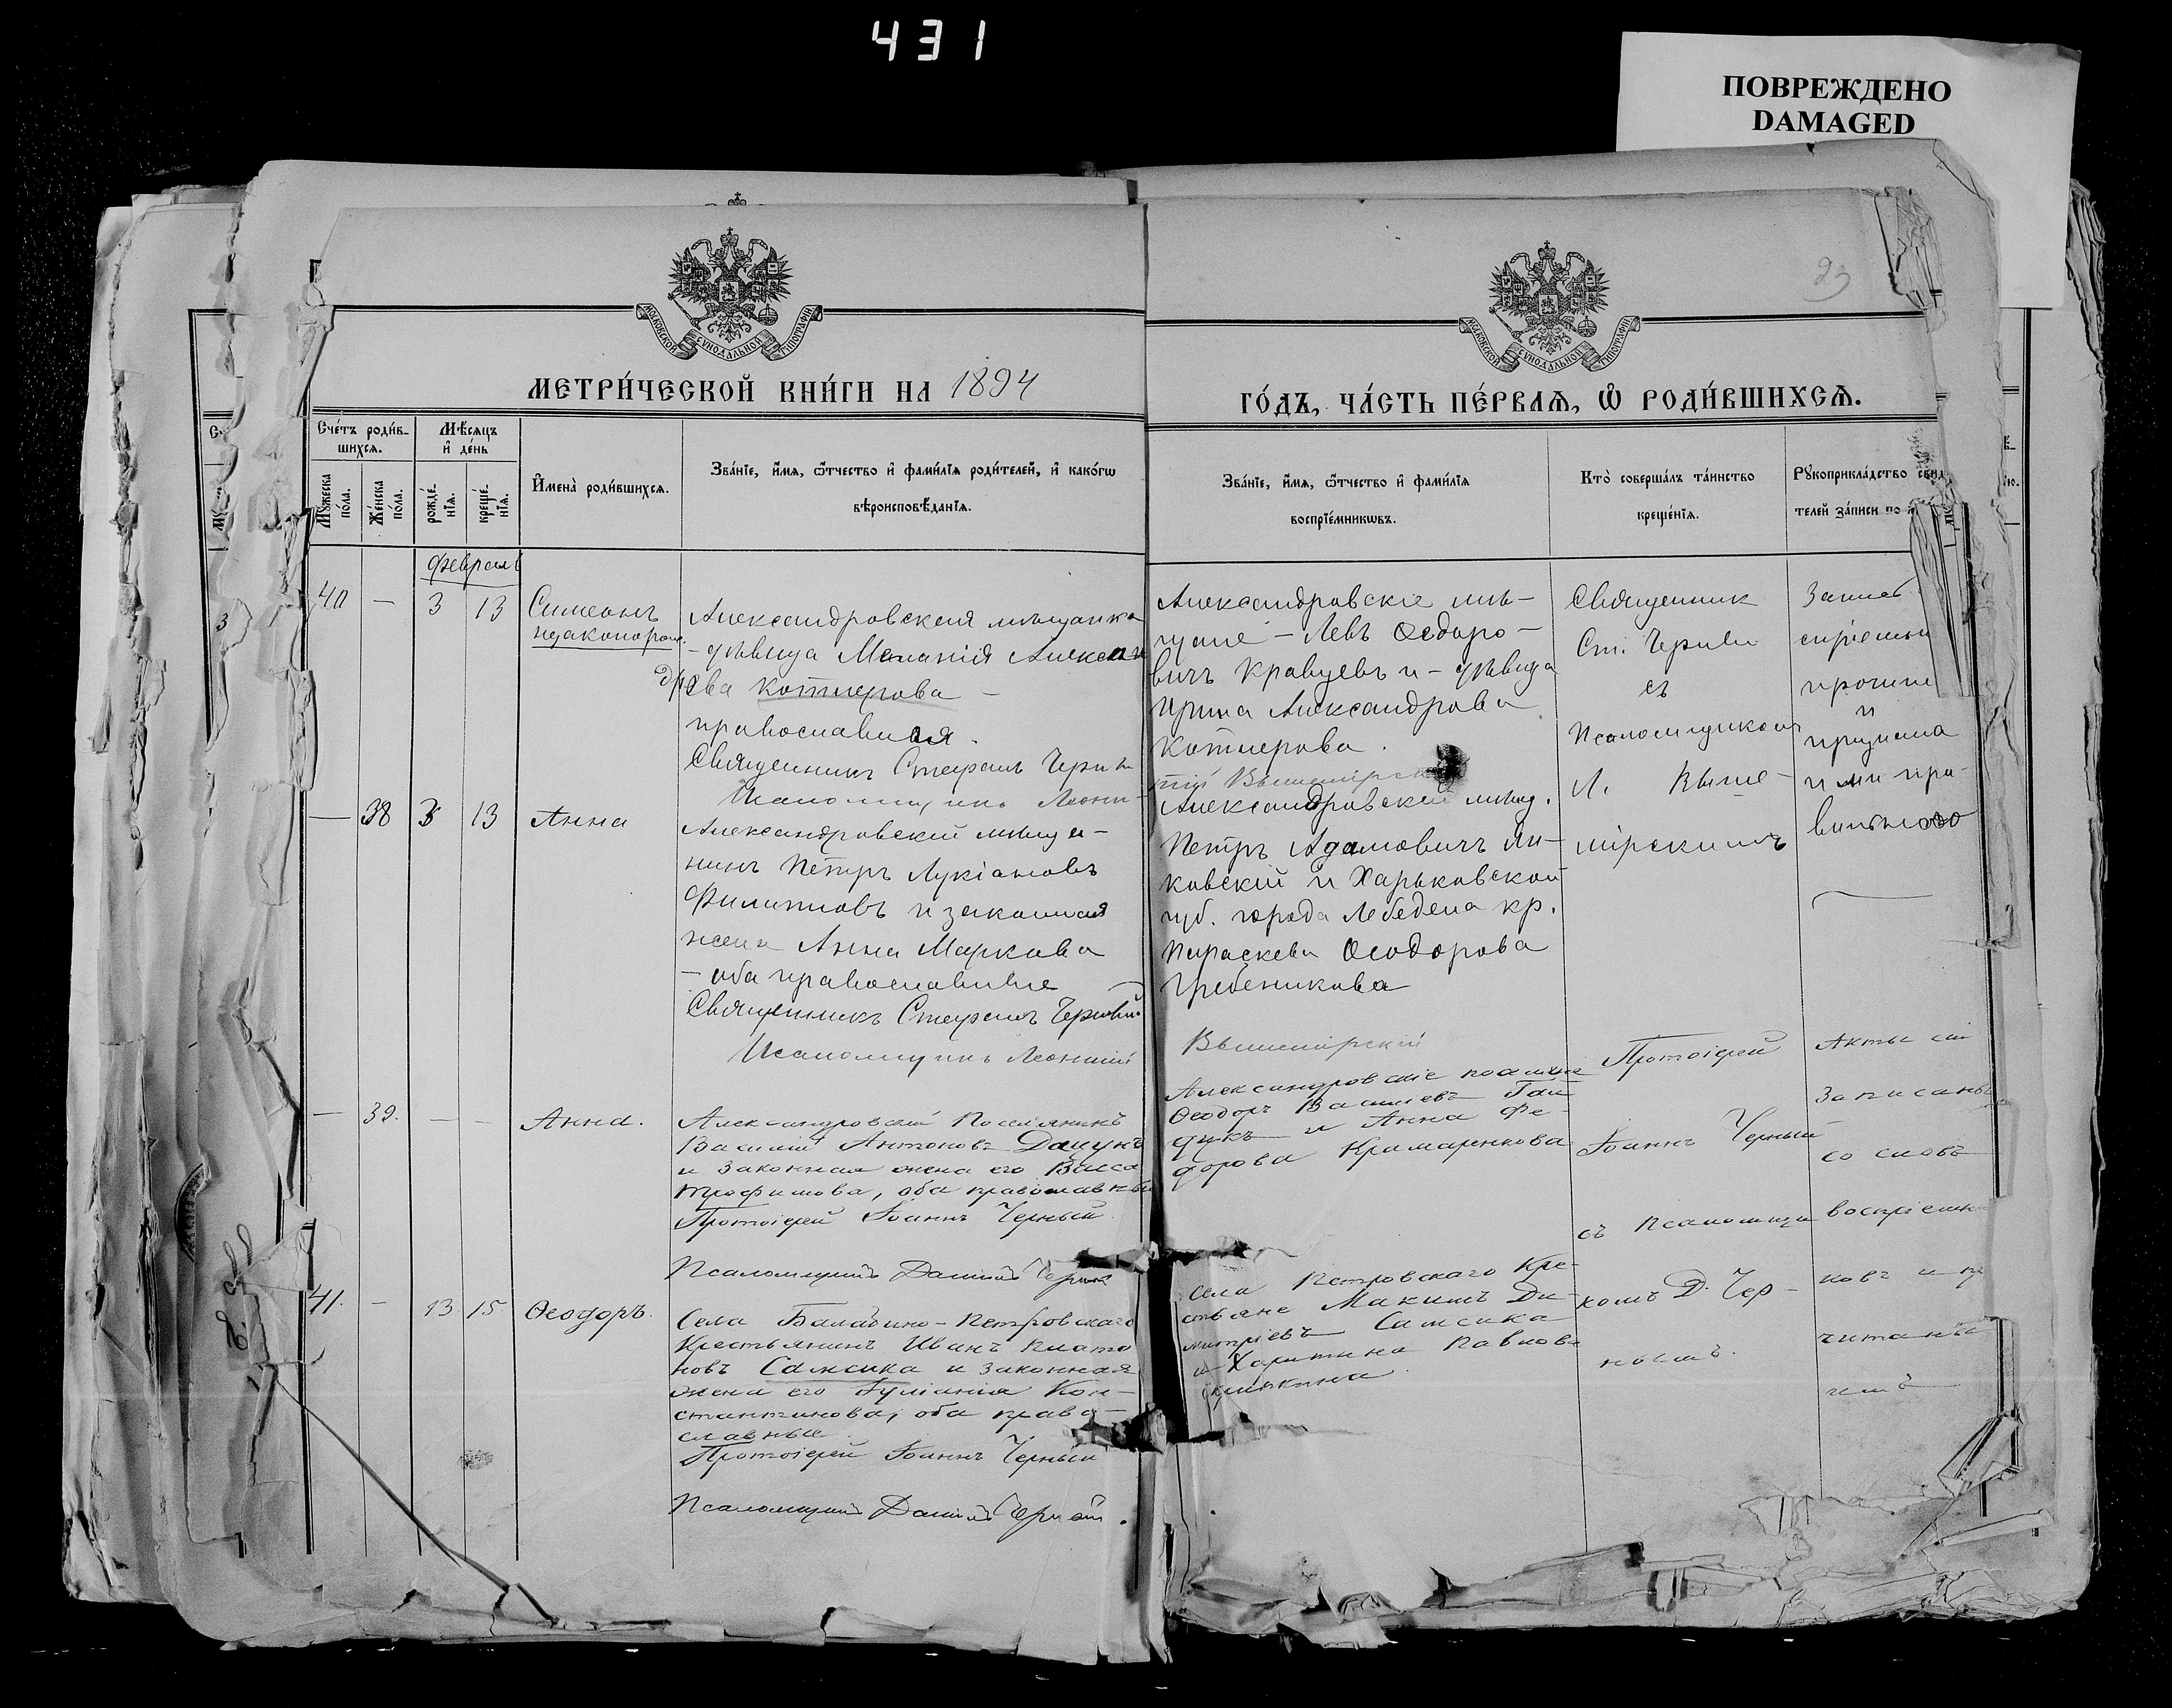 431
ПОВРЕЖДЕНО
DAMAGED
23
МОСКОВСКОЙ СѴНОДАЛЬНОЙ ТИПОГРАФІИ
МОСКОВСКОЙ СѴНОДАЛЬНОЙ ТИПОГРАФІИ
МЕТРИ́ЧЕСКОЙ КНИ́ГИ НА 1894
ГО́ДЪ, ЧА́СТЬ ПЕ́РВАѦ, Ѡ҆ РОДИ́ВШИХСѦ.
Сче́тъ роди́в-
шихся.
Мѣ́сяцъ
и҆ де́нь
Мꙋ́жеска
по́ла.
Же́нска
по́ла.
рожде́-
нїя.
креще́-
нїя.
И҆мена̀ роди́вшихся.
Зва́нїе, и҆́мя, ѻ҆́тчество и҆ фами́лїя роди́телей, и҆ како́гѡ
вѣроисповѣ́данїя.
Зва́нїе, и҆́мя, ѻ҆́тчество и҆ фами́лїя
воспрїе́мникѡвъ.
Кто̀ соверша́лъ та́инство
креще́нїя.
Рꙋкоприкла́дство свид
телей за́писи по
февраль
40 — 3 13 Симеонъ
незаконорож.
Александровская мѣщанка
— дѣвица Меланія Алексан
дрова Котлерова —
православная.
Священникъ Стефанъ Черн
Псаломщикъ Леон-
Александровскіе мѣ-
щане — Левъ Ѳедоро-
вичъ Кравцевъ и — дѣвица
Ирина Александрова
Котлерова.
тій Вышемірскій
Священник
Ст. Черня
съ
Псаломщиком
Л. Выше-
мірскимъ
прочит
и
признана
и ми пра-
вильною
— 38 3 13 Анна
Александровскій мѣща-
нинъ Петръ Лукіановъ
Филипповъ и законная
жена Анна Маркова
— оба православные
Священникъ Стефанъ
Псаломщикъ Леонтій
Александровскій мѣщ.
Петръ Адамовичъ
ковскій и Харьковской
губ. города Лебедена кр.
Параскева Ѳеодорова
Гребеникова
Вышемірскій
— 39. — — Анна.
Александровскій Поселянинъ
Василій Антоновъ Дацунъ
и законная жена его Васса
Трофимова, оба православны
Протоіерей Іоаннъ Черный
Псаломщикъ Даніилъ Черн
Александровскіе поселяне
Ѳеодоръ Васильевъ Гай
дукъ и Анна Фе-
дорова Крамаренкова
Протоіерей
Іоаннъ Черный
съ Псаломщи
комъ Д. Чер-
нымъ.
Акты сіи
Записаны
со словъ
воспріемни
ковъ и пр
читаны
имъ
41. — 13 15 Ѳеодоръ.
Села Балабино-Петровскаго
Крестьянинъ Иванъ Плато
новъ Самсика и законная
жена его Іуліанія Кон-
стантинова, оба право-
славные
Протоіерей Іоаннъ Черный
Псаломщикъ Даніилъ Черный.
села Петровскаго Кре-
стьяне Максимъ Ди-
митріевъ Самсика
и Харитина Павлова